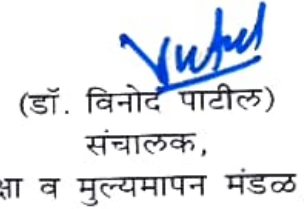 (डॉ. विनोद पाटील)
संचालक,
क्षा व मुल्यमापन मंडळ